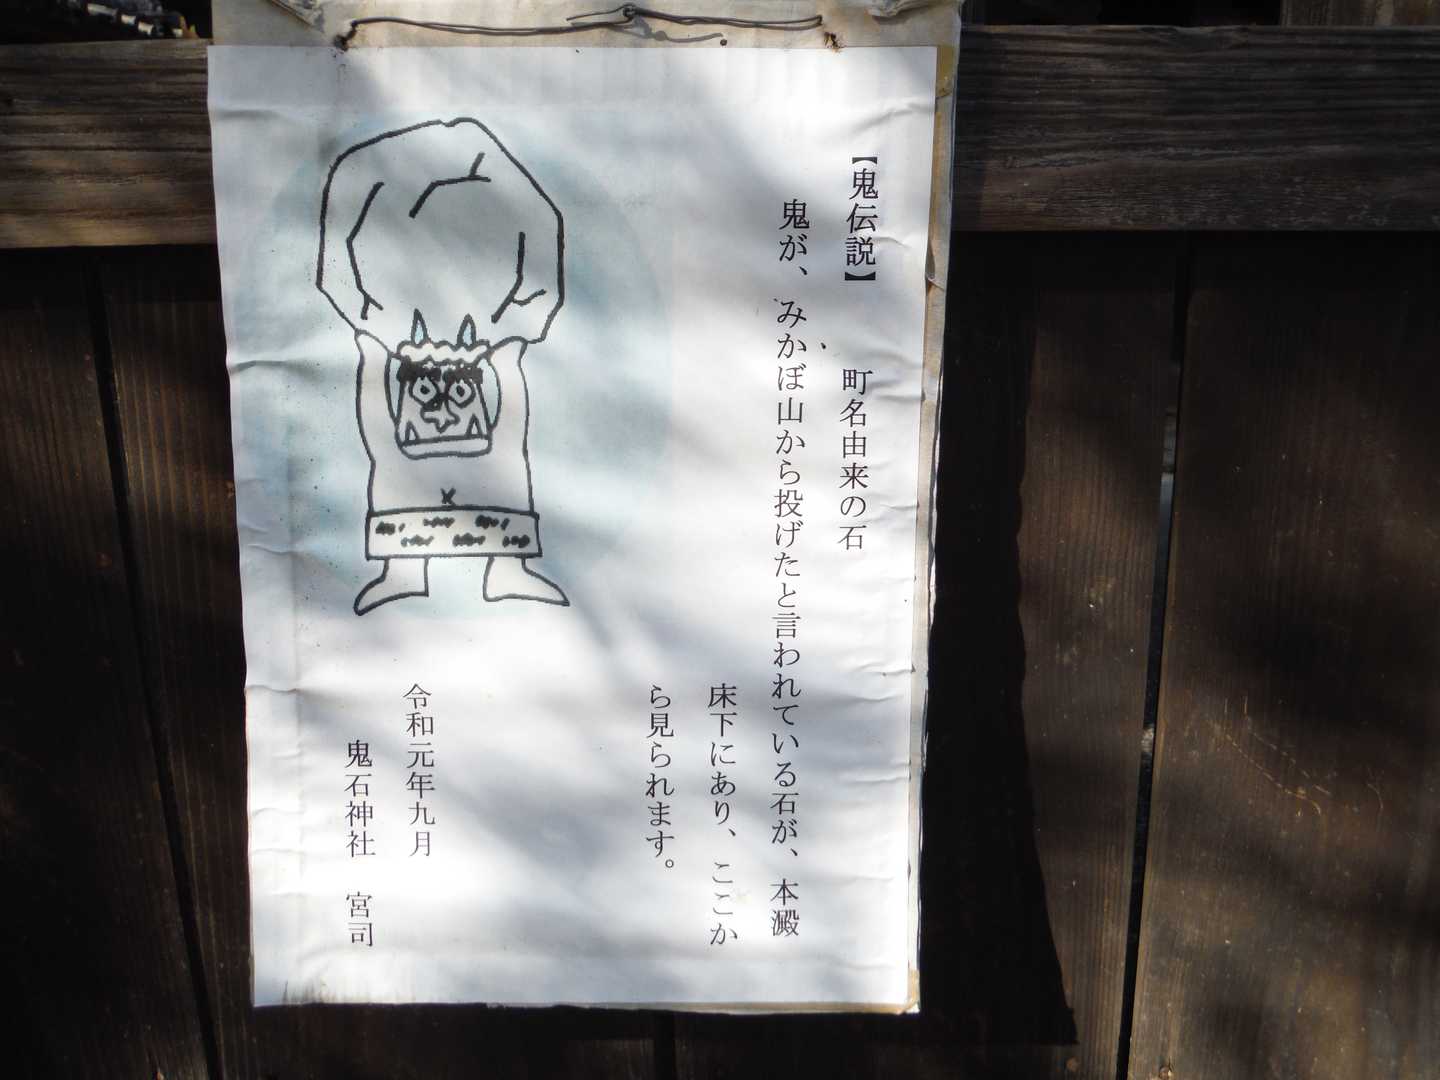 【鬼伝説】　町名由来の石
鬼が、みかぼ山から投げたと言われている石が、本澱
床下にあり、ここか
ら見られます。
令和元年九月
鬼石神社　宮司